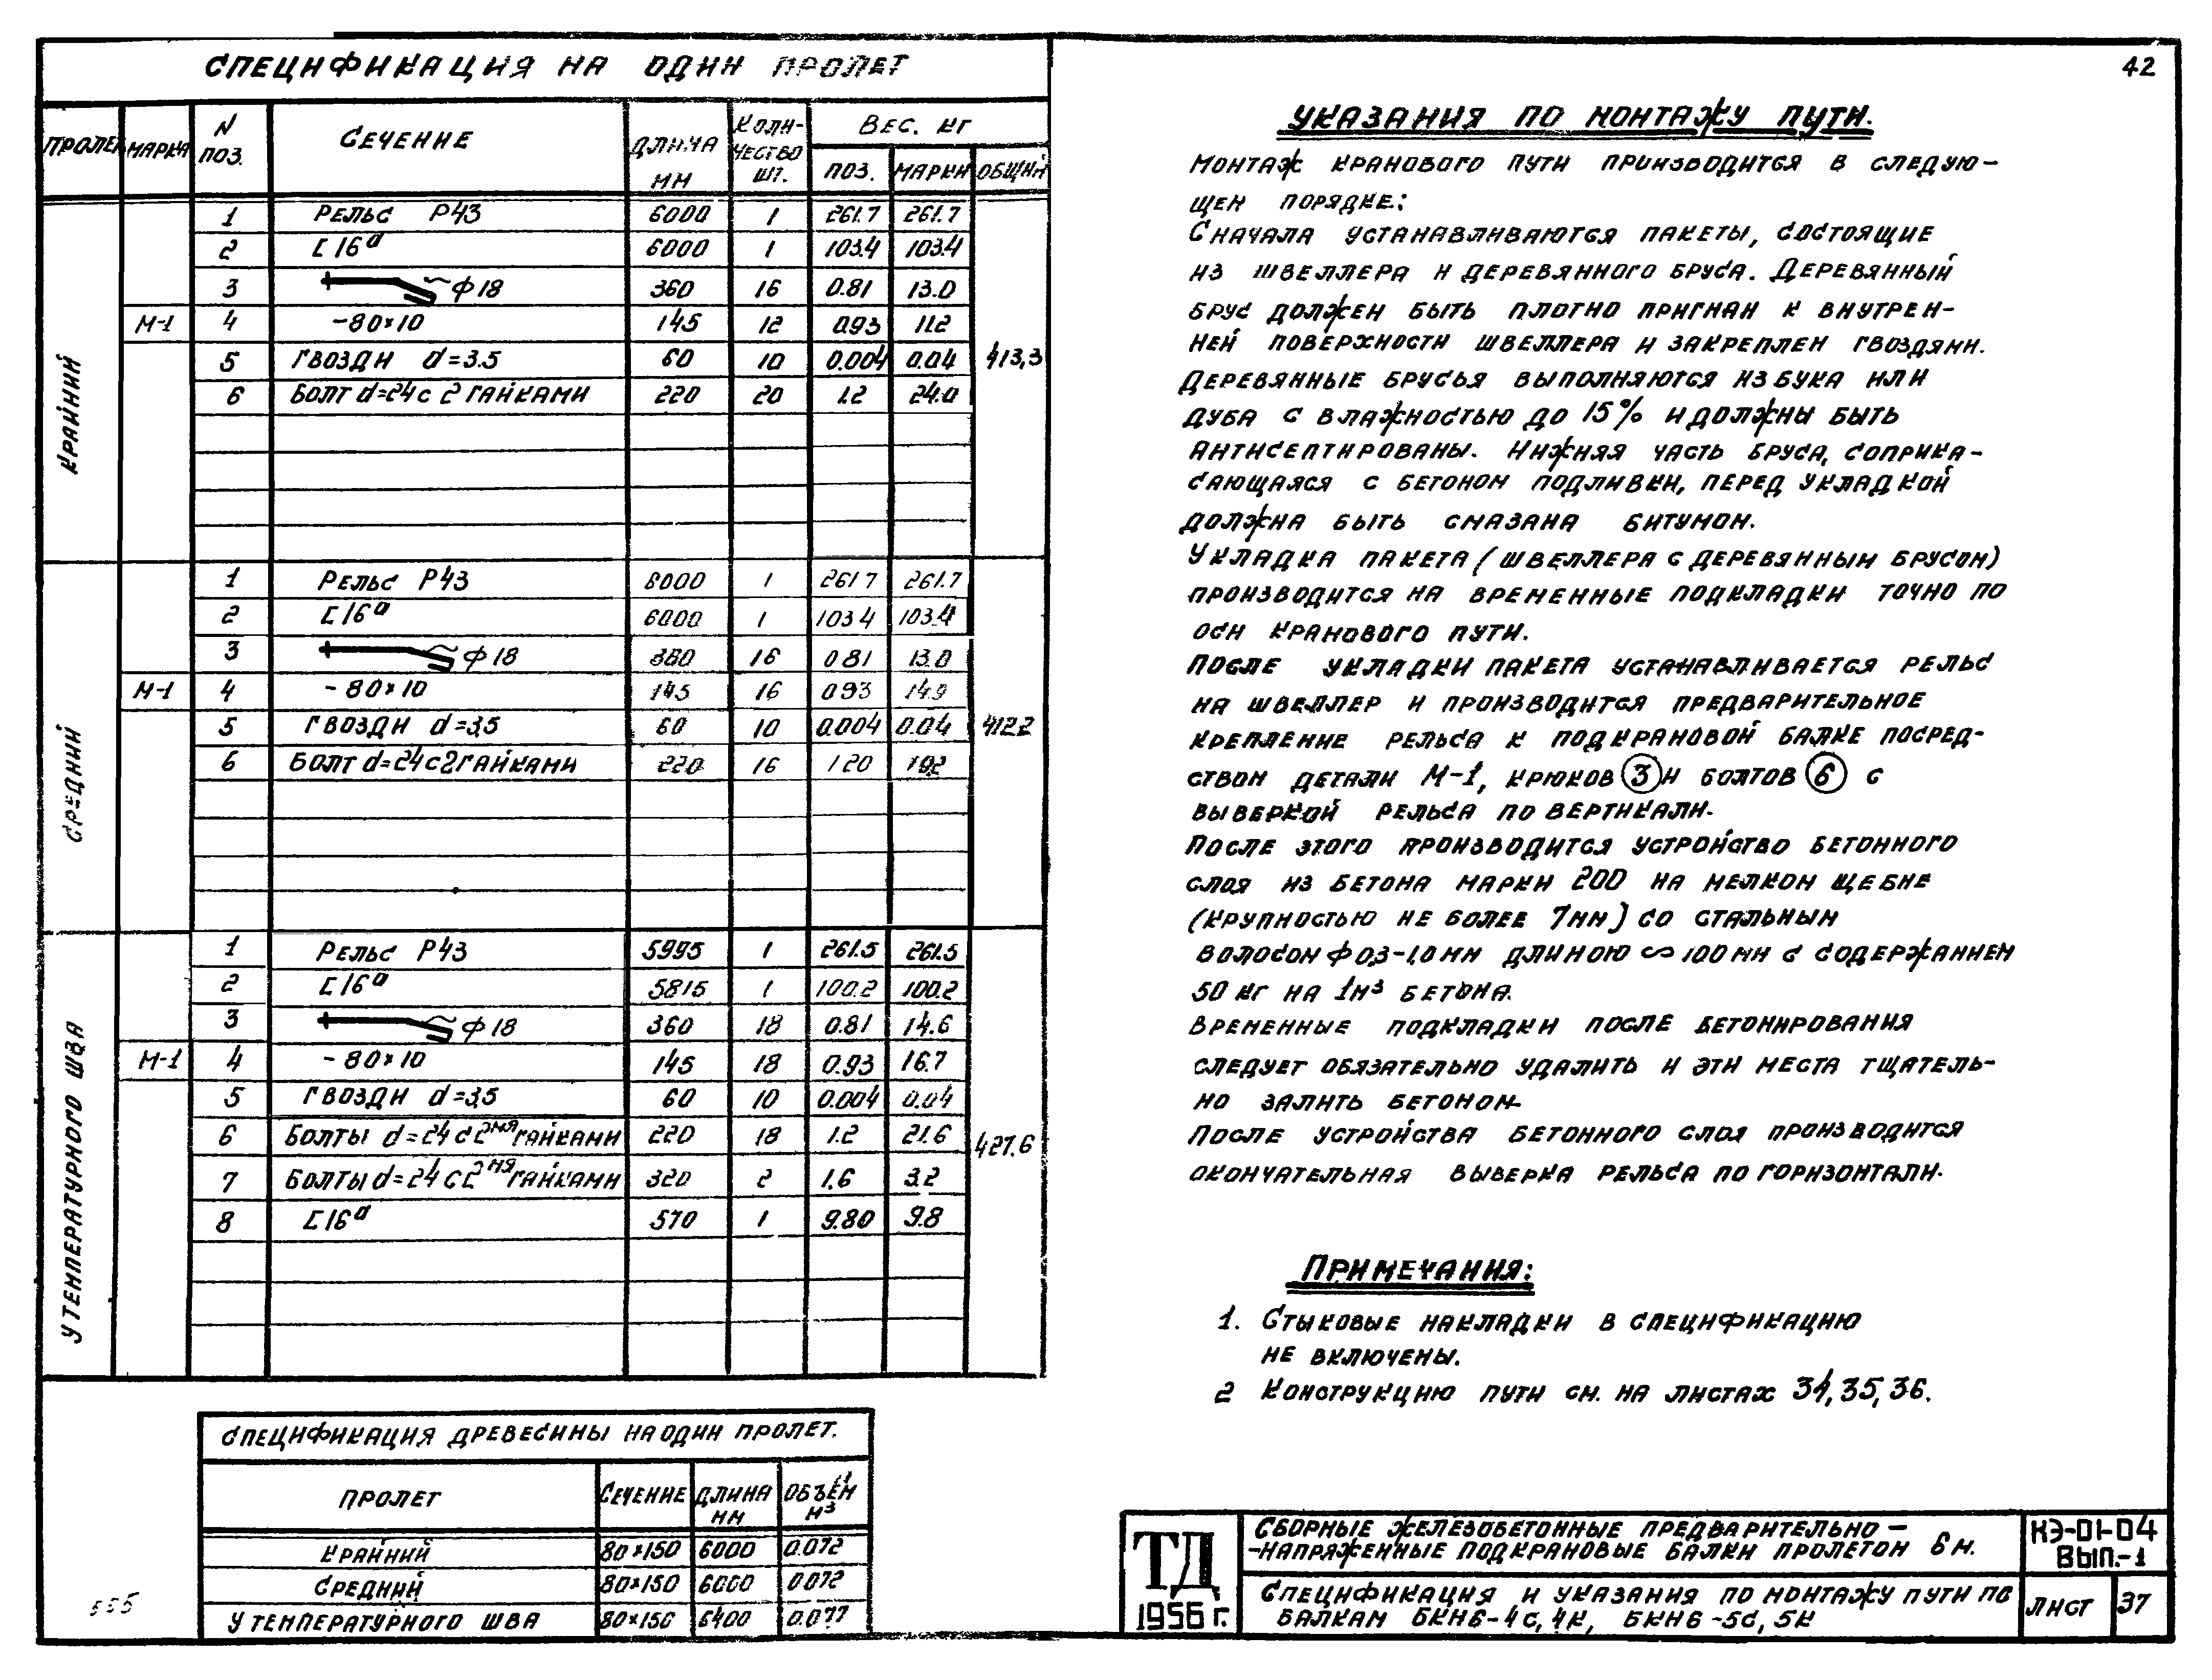 СПЕЦИФИКАЦИЯ НА ОДИН ПРОЛЕТ
ПРОЛЕТ МАРКА N ПОЗ. СЕЧЕНИЕ ДЛИНА ММ КОЛИ-ЧЕСТВО ШТ. ВЕС. КГ
ПОЗ. МАРКИ ОБЩИЙ
КРАЙНИЙ
1 РЕЛЬС Р43 6000 1 261.7 261.7
2 [16а 6000 1 103.4 103.4
3 ф18 360 16 0.81 13.0
М-1 4 -80×10 145 12 0.93 11.2
5 ГВОЗДИ d=3.5 60 10 0.004 0.04 413,3
6 БОЛТ d=24 С 2 ГАЙКАМИ 220 20 1.2 24.0
СРЕДНИЙ
1 РЕЛЬС Р43 6000 1 261.7 261.7
2 [16а 6000 1 103.4 103.4
3 ф18 360 16 0.81 13.0
М-1 4 -80×10 145 16 0.93 14.9
5 ГВОЗДИ d=3,5 60 10 0.004 0.04 412.2
6 БОЛТ d=24 С 2 ГАЙКАМИ 220 16 1.20 19.2
У ТЕМПЕРАТУРНОГО ШВА
1 РЕЛЬС Р43 5995 1 261.5 261.5
2 [16а 5815 1 100.2 100.2
3 ф18 360 18 0.81 14.6
М-1 4 -80×10 145 18 0.93 16.7
5 ГВОЗДИ d=3,5 60 10 0.004 0.04
6 БОЛТЫ d=24 С 2МЯ ГАЙКАМИ 220 18 1.2 21.6 427.6
7 БОЛТЫ d=24 С 2МЯ ГАЙКАМИ 320 2 1.6 3.2
8 [16а 570 1 9.80 9.8
СПЕЦИФИКАЦИЯ ДРЕВЕСИНЫ НА ОДИН ПРОЛЕТ.
ПРОЛЕТ СЕЧЕНИЕ ДЛИНА ММ ОБЪЕМ М3
КРАЙНИЙ 80×150 6000 0.072
СРЕДНИЙ 80×150 6000 0.072
У ТЕМПЕРАТУРНОГО ШВА 80×150 6400 0.077
42
УКАЗАНИЯ ПО МОНТАЖУ ПУТИ.
МОНТАЖ КРАНОВОГО ПУТИ ПРОИЗВОДИТСЯ В СЛЕДУЮ-
ЩЕМ ПОРЯДКЕ:
СНАЧАЛА УСТАНАВЛИВАЮТСЯ ПАКЕТЫ, СОСТОЯЩИЕ
ИЗ ШВЕЛЛЕРА И ДЕРЕВЯННОГО БРУСА. ДЕРЕВЯННЫЙ
БРУС ДОЛЖЕН БЫТЬ ПЛОТНО ПРИГНАН К ВНУТРЕН-
НЕЙ ПОВЕРХНОСТИ ШВЕЛЛЕРА И ЗАКРЕПЛЕН ГВОЗДЯМИ.
ДЕРЕВЯННЫЕ БРУСЬЯ ВЫПОЛНЯЮТСЯ ИЗ БУКА ИЛИ
ДУБА С ВЛАЖНОСТЬЮ ДО 15% И ДОЛЖНЫ БЫТЬ
АНТИСЕПТИРОВАНЫ. НИЖНЯЯ ЧАСТЬ БРУСА, СОПРИКА-
САЮЩАЯСЯ С БЕТОНОМ ПОДЛИВКИ, ПЕРЕД УКЛАДКОЙ
ДОЛЖНА БЫТЬ СМАЗАНА БИТУМОМ.
УКЛАДКА ПАКЕТА (ШВЕЛЛЕРА С ДЕРЕВЯННЫМ БРУСОМ)
ПРОИЗВОДИТСЯ НА ВРЕМЕННЫЕ ПОДКЛАДКИ ТОЧНО ПО
ОСИ КРАНОВОГО ПУТИ.
ПОСЛЕ УКЛАДКИ ПАКЕТА УСТАНАВЛИВАЕТСЯ РЕЛЬС
НА ШВЕЛЛЕР И ПРОИЗВОДИТСЯ ПРЕДВАРИТЕЛЬНОЕ
КРЕПЛЕНИЕ РЕЛЬСА К ПОДКРАНОВОЙ БАЛКЕ ПОСРЕД-
СТВОМ ДЕТАЛИ М-1, КРЮКОВ 3 И БОЛТОВ 6 С
ВЫВЕРКОЙ РЕЛЬСА ПО ВЕРТИКАЛИ.
ПОСЛЕ ЭТОГО ПРОИЗВОДИТСЯ УСТРОЙСТВО БЕТОННОГО
СЛОЯ ИЗ БЕТОНА МАРКИ 200 НА МЕЛКОМ ЩЕБНЕ
(КРУПНОСТЬЮ НЕ БОЛЕЕ 7ММ) СО СТАЛЬНЫМ
ВОЛОСОМ Ф 0,3-1,0 ММ ДЛИНОЮ ∾ 100 ММ С СОДЕРЖАНИЕМ
50 КГ НА 1М3 БЕТОНА.
ВРЕМЕННЫЕ ПОДКЛАДКИ ПОСЛЕ БЕТОНИРОВАНИЯ
СЛЕДУЕТ ОБЯЗАТЕЛЬНО УДАЛИТЬ И ЭТИ МЕСТА ТЩАТЕЛЬ-
НО ЗАЛИТЬ БЕТОНОМ.
ПОСЛЕ УСТРОЙСТВА БЕТОННОГО СЛОЯ ПРОИЗВОДИТСЯ
ОКОНЧАТЕЛЬНАЯ ВЫВЕРКА РЕЛЬСА ПО ГОРИЗОНТАЛИ.
ПРИМЕЧАНИЯ:
1. СТЫКОВЫЕ НАКЛАДКИ В СПЕЦИФИКАЦИЮ
НЕ ВКЛЮЧЕНЫ.
2 КОНСТРУКЦИЮ ПУТИ СМ. НА ЛИСТАХ 34, 35, 36.
ТД
1956 г.
СБОРНЫЕ ЖЕЛЕЗОБЕТОННЫЕ ПРЕДВАРИТЕЛЬНО-
-НАПРЯЖЕННЫЕ ПОДКРАНОВЫЕ БАЛКИ ПРОЛЕТОМ 6 М.
КЭ-01-04
ВЫП.-1
СПЕЦИФИКАЦИЯ И УКАЗАНИЯ ПО МОНТАЖУ ПУТИ ПО
БАЛКАМ БКН6-4С, 4К, БКН6-5С, 5К
ЛИСТ 37